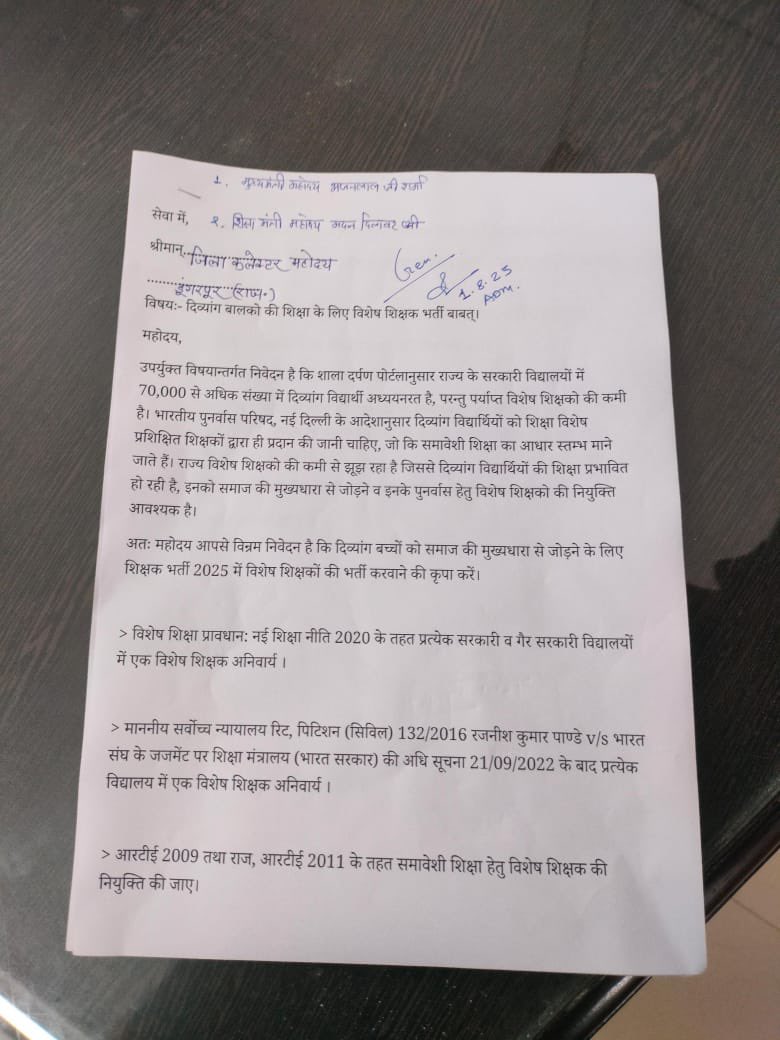 1. मुख्यमंत्री महोदय भजनलाल जी शर्मा
सेवा में, 2. शिक्षा मंत्री महोदय मदन दिलावर जी
श्रीमान् जिला कलेक्टर महोदय
डूंगरपुर (राज.)
Gen.
1.8.25
ADM.
विषयः- दिव्यांग बालको की शिक्षा के लिए विशेष शिक्षक भर्ती बाबत्।
महोदय,
उपर्युक्त विषयान्तर्गत निवेदन है कि शाला दर्पण पोर्टलानुसार राज्य के सरकारी विद्यालयों में
70,000 से अधिक संख्या में दिव्यांग विद्यार्थी अध्ययनरत है, परन्तु पर्याप्त विशेष शिक्षको की कमी
है। भारतीय पुनर्वास परिषद, नई दिल्ली के आदेशानुसार दिव्यांग विद्यार्थियों को शिक्षा विशेष
प्रशिक्षित शिक्षकों द्वारा ही प्रदान की जानी चाहिए, जो कि समावेशी शिक्षा का आधार स्तम्भ माने
जाते हैं। राज्य विशेष शिक्षको की कमी से झूझ रहा है जिससे दिव्यांग विद्यार्थियों की शिक्षा प्रभावित
हो रही है, इनको समाज की मुख्यधारा से जोड़ने व इनके पुनर्वास हेतु विशेष शिक्षको की नियुक्ति
आवश्यक है।
अतः महोदय आपसे विन्रम निवेदन है कि दिव्यांग बच्चों को समाज की मुख्यधारा से जोड़ने के लिए
शिक्षक भर्ती 2025 में विशेष शिक्षकों की भर्ती करवाने की कृपा करें।
> विशेष शिक्षा प्रावधान: नई शिक्षा नीति 2020 के तहत प्रत्येक सरकारी व गैर सरकारी विद्यालयों
में एक विशेष शिक्षक अनिवार्य ।
> माननीय सर्वोच्च न्यायालय रिट, पिटिशन (सिविल) 132/2016 रजनीश कुमार पाण्डे v/s भारत
संघ के जजमेंट पर शिक्षा मंत्रालय (भारत सरकार) की अधि सूचना 21/09/2022 के बाद प्रत्येक
विद्यालय में एक विशेष शिक्षक अनिवार्य ।
> आरटीई 2009 तथा राज, आरटीई 2011 के तहत समावेशी शिक्षा हेतु विशेष शिक्षक की
नियुक्ति की जाए।